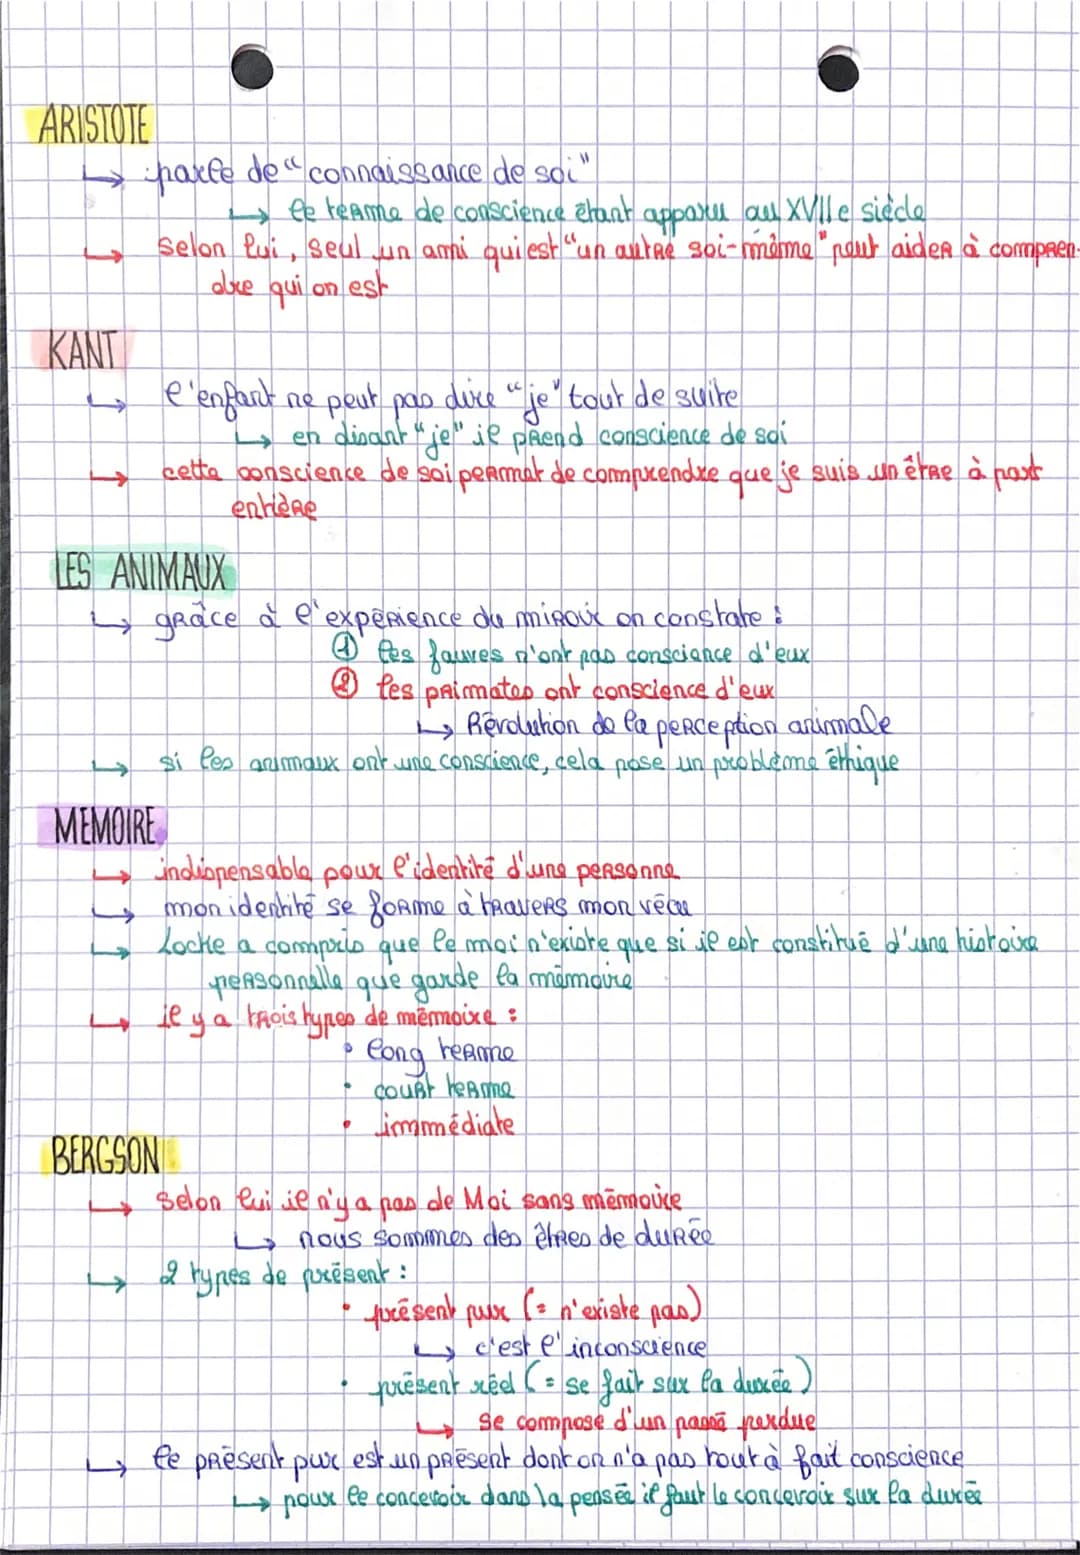 ARISTOTE
↳ parle de "connaissance de soi"
↳ le terme de conscience étant apparu au XVIIe siècle
↳ selon lui, seul un ami qui est "un autre soi-même" peut aider à compren-
dre qui on est
KANT
↳ l'enfant ne peut pas dire "je" tout de suite
↳ en disant "je" il prend conscience de soi
↳ cette conscience de soi permet de comprendre que je suis un être à part
entière
LES ANIMAUX
↳ grâce à l'expérience du miroir on constate :
① les fauves n'ont pas conscience d'eux
② les primates ont conscience d'eux
↳ Révolution de la perception animale
↳ si les animaux ont une conscience, cela pose un problème éthique
MEMOIRE
↳ indispensable pour l'identité d'une personne
↳ mon identité se forme à travers mon vécu
↳ Locke a compris que le moi n'existe que si il est constitué d'une histoire
personnelle que garde la mémoire
↳ il y a trois types de mémoire :
• long terme
• court terme
• immédiate
BERGSON
↳ selon lui il n'y a pas de Moi sans mémoire
↳ nous sommes des êtres de durée
↳ 2 types de présent :
• présent pur (= n'existe pas)
↳ c'est l'inconscience
• présent réel (= se fait sur la durée)
↳ se compose d'un passé perdue
↳ le présent pur est un présent dont on n'a pas tout à fait conscience
↳ pour le concevoir dans la pensée il faut le concevoir sur la durée